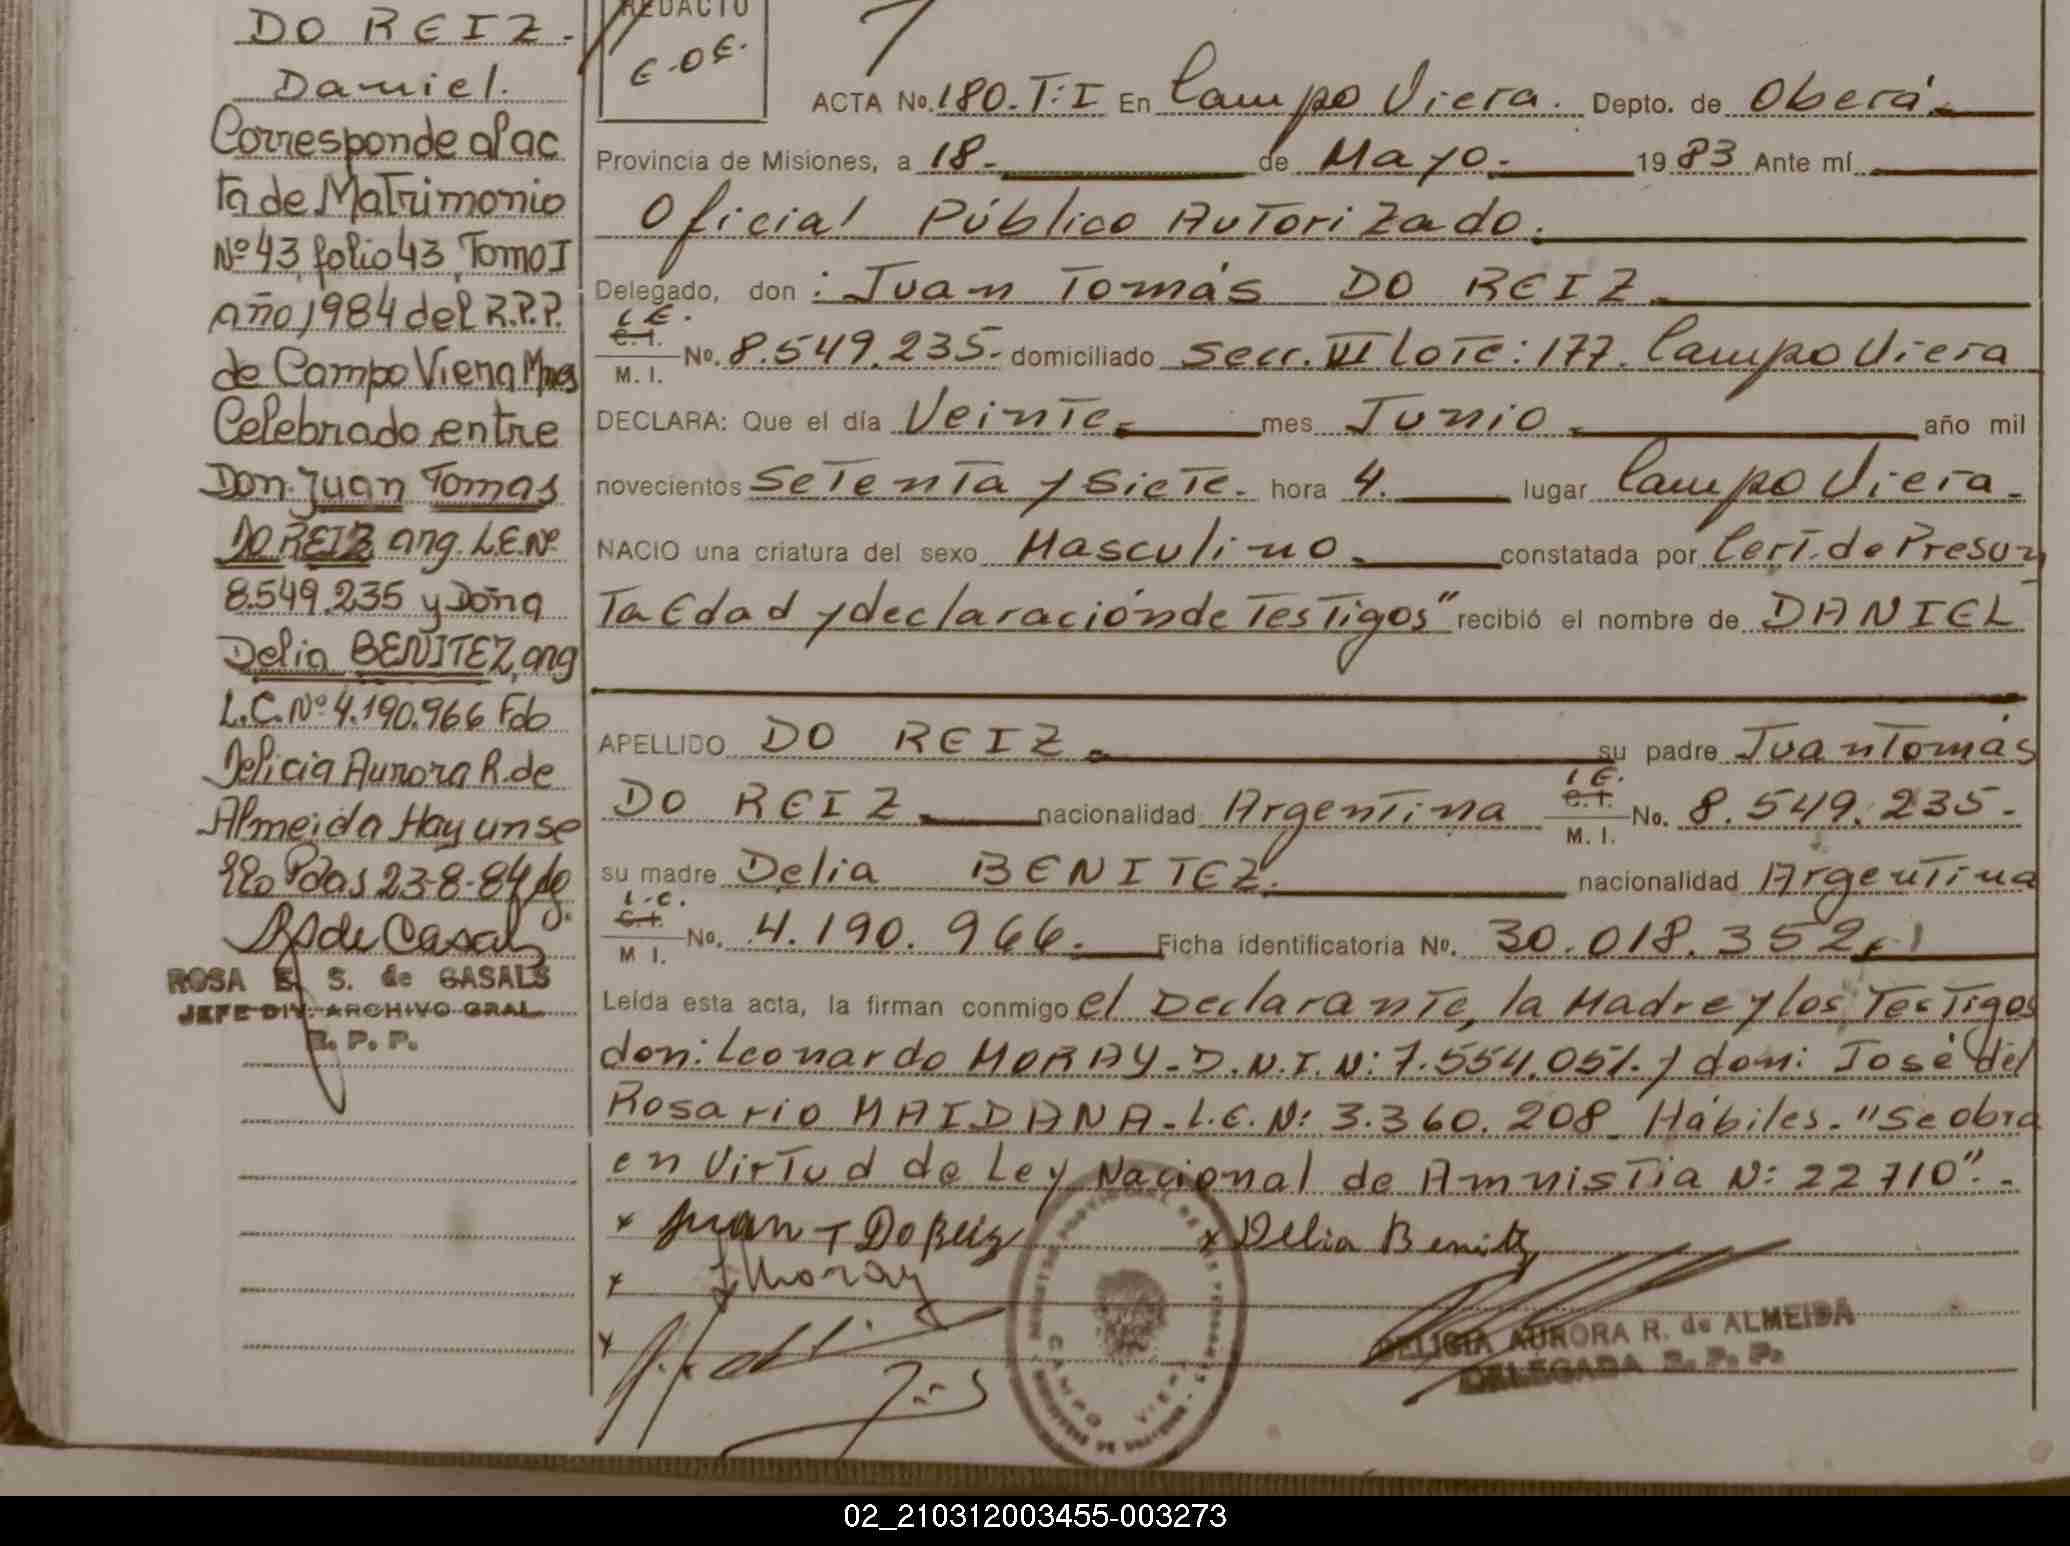 DO REIZ.
Daniel.
Corresponde al ac
ta de Matrimonio
Nº 43, folio 43, Tomo I
año 1984 del R.P.P.
de Campo Viera Mnes
Celebrado entre
Don Juan Tomas
DO REIZ arg. L.E.Nº
8.549.235 y Doña
Delia BENITEZ, arg
L.C. Nº 4.190.966 Fdo
Delicia Aurora R. de
Almeida Hay un se
llo Pdas 23-8-84
RS de Casals
ROSA E. S. de CASALS
JEFE DIV. ARCHIVO GRAL.
R. P. P.
REDACTO
E.O.E.
ACTA No. 180.T:I En Campo Viera. Depto. de Oberá.
Provincia de Misiones, a 18. de Mayo. 1983 Ante mí
Oficial Público Autorizado.
Delegado, don : Juan Tomás DO REIZ
L.E.
C.I.
M. I. No. 8.549.235. domiciliado Secc. VI lote: 177. Campo Viera
DECLARA: Que el día Veinte. mes Junio. año mil
novecientos Setenta y Siete. hora 4. lugar Campo Viera.
NACIO una criatura del sexo Masculino. constatada por Cert. de Presun
ta Edad y declaración de Testigos" recibió el nombre de DANIEL
APELLIDO DO REIZ. su padre Juan Tomás
DO REIZ. nacionalidad Argentina L.E. C.I. M. I. No. 8.549.235.
su madre Delia BENITEZ. nacionalidad Argentina
L.C.
C.I.
M I. No. 4.190.966. Ficha identificatoria No. 30.018.352
Leída esta acta, la firman conmigo el Declarante, la Madre y los Testigos
don: Leonardo MORAY. D.N.I.N: 7.554.051. y don: José del
Rosario MAIDANA. L.E. N: 3.360.208 Hábiles. "Se obra
en Virtud de Ley Nacional de Amnistia N: 22710".
x Juan T Do Reiz x Delia Benitez
x LMoray
x
CAMPO VIERA
DELICIA AURORA R. de ALMEIDA
DELEGADA R. P. P.
02_210312003455-003273